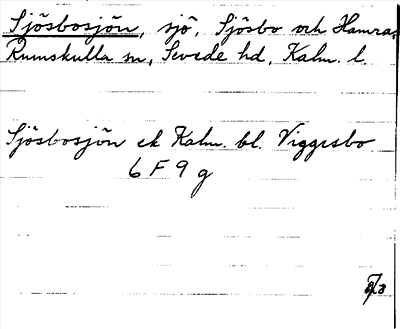 Sjösbosjön, sjö, Sjösbo och Hamra,
Rumskulla sn, Sevede hd, Kalm. l.
Sjösbosjön ek Kalm. bl. Viggesbo
6 F 9 g